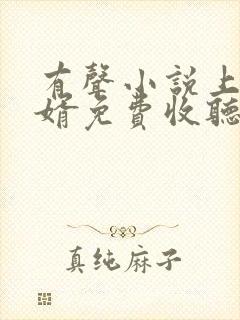 有聲小説上
婿免費收聽
真纯麻子